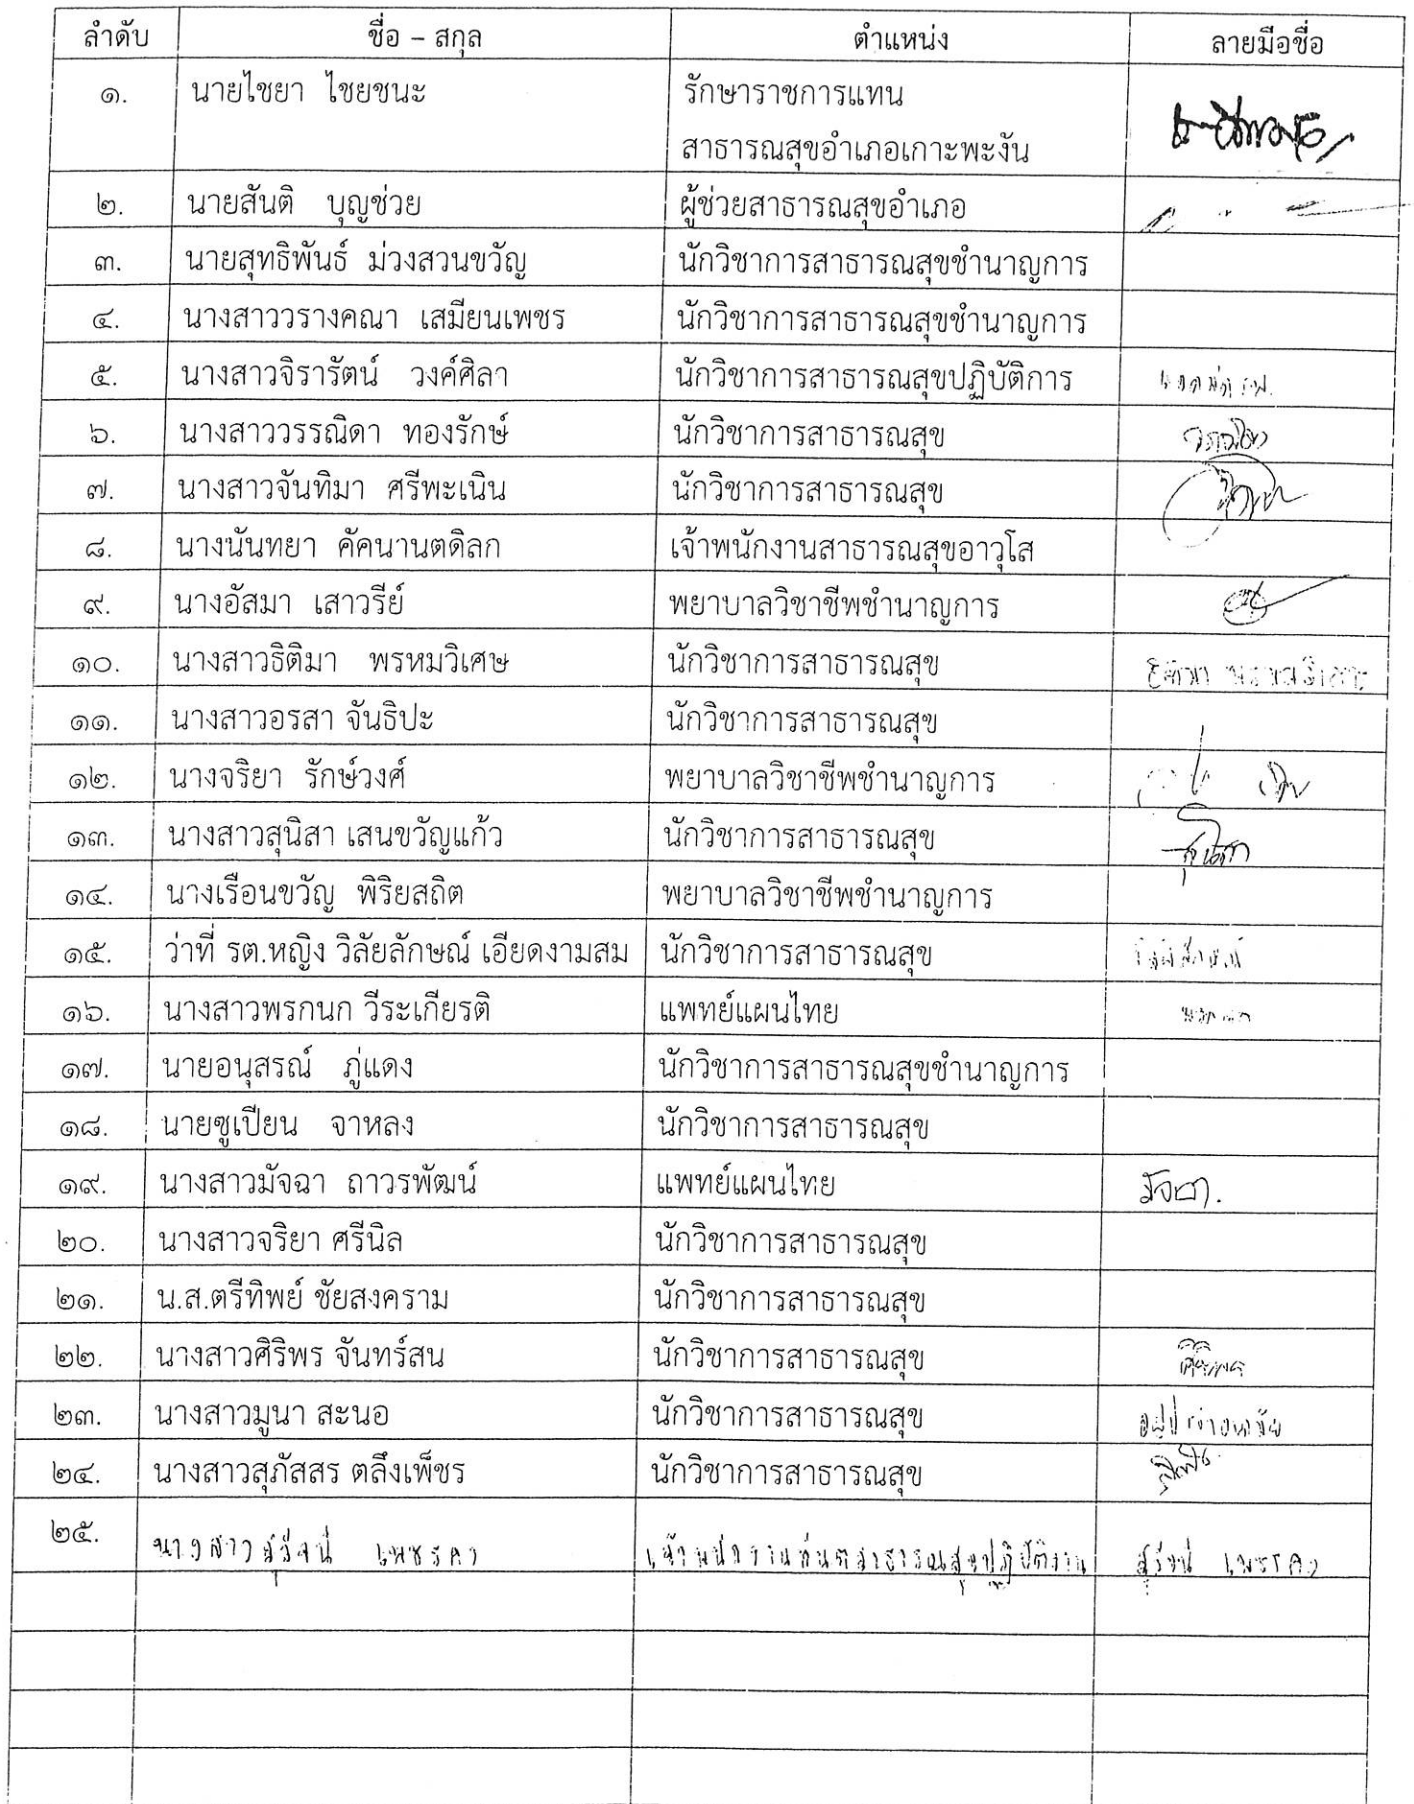 ลำดับ ชื่อ – สกุล ตำแหน่ง ลายมือชื่อ
๑. นายไชยา ไชยชนะ รักษาราชการแทน
สาธารณสุขอำเภอเกาะพะงัน
๒. นายสันติ บุญช่วย ผู้ช่วยสาธารณสุขอำเภอ
๓. นายสุทธิพันธ์ ม่วงสวนขวัญ นักวิชาการสาธารณสุขชำนาญการ
๔. นางสาววรางคณา เสมียนเพชร นักวิชาการสาธารณสุขชำนาญการ
๕. นางสาวจิรารัตน์ วงค์ศิลา นักวิชาการสาธารณสุขปฏิบัติการ
๖. นางสาววรรณิดา ทองรักษ์ นักวิชาการสาธารณสุข
๗. นางสาวจันทิมา ศรีพะเนิน นักวิชาการสาธารณสุข
๘. นางนันทยา คัคนานตดิลก เจ้าพนักงานสาธารณสุขอาวุโส
๙. นางอัสมา เสาวรีย์ พยาบาลวิชาชีพชำนาญการ
๑๐. นางสาวธิติมา พรหมวิเศษ นักวิชาการสาธารณสุข
๑๑. นางสาวอรสา จันธิปะ นักวิชาการสาธารณสุข
๑๒. นางจริยา รักษ์วงศ์ พยาบาลวิชาชีพชำนาญการ
๑๓. นางสาวสุนิสา เสนขวัญแก้ว นักวิชาการสาธารณสุข สุนิสา
๑๔. นางเรือนขวัญ พิริยสถิต พยาบาลวิชาชีพชำนาญการ
๑๕. ว่าที่ รต.หญิง วิลัยลักษณ์ เอียดงามสม นักวิชาการสาธารณสุข
๑๖. นางสาวพรกนก วีระเกียรติ แพทย์แผนไทย
๑๗. นายอนุสรณ์ ภู่แดง นักวิชาการสาธารณสุขชำนาญการ
๑๘. นายซูเปียน จาหลง นักวิชาการสาธารณสุข
๑๙. นางสาวมัจฉา ถาวรพัฒน์ แพทย์แผนไทย มัจฉา.
๒๐. นางสาวจริยา ศรีนิล นักวิชาการสาธารณสุข
๒๑. น.ส.ตรีทิพย์ ชัยสงคราม นักวิชาการสาธารณสุข
๒๒. นางสาวศิริพร จันทร์สน นักวิชาการสาธารณสุข
๒๓. นางสาวมูนา สะนอ นักวิชาการสาธารณสุข
๒๔. นางสาวสุภัสสร ตลึงเพ็ชร นักวิชาการสาธารณสุข
๒๕. นางสาวสุรัจน์ เพชรคง เจ้าพนักงานทันตสาธารณสุขปฏิบัติงาน สุรัจน์ เพชรคง